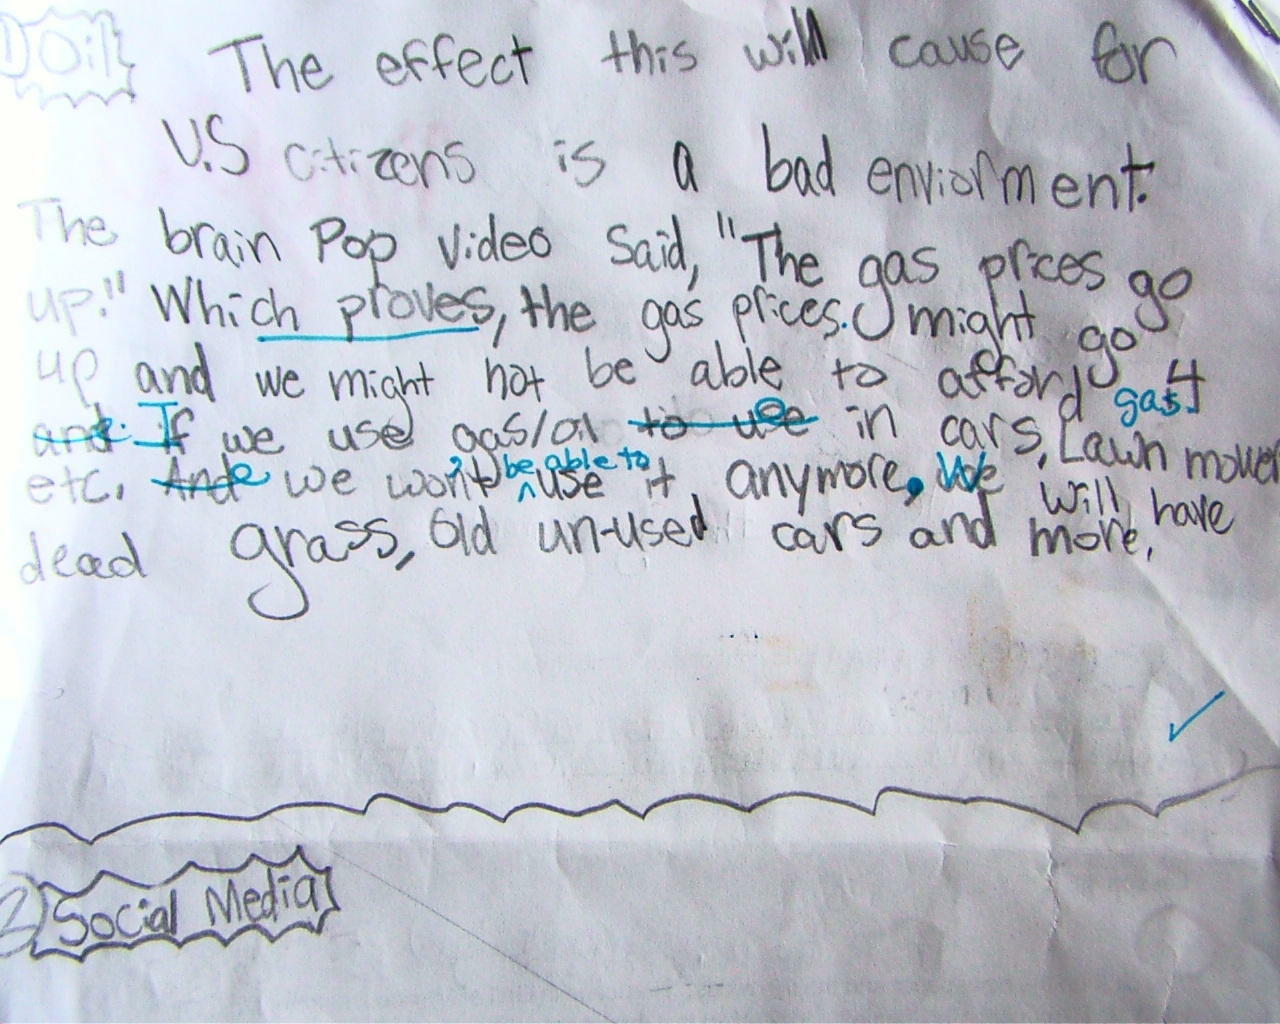 1) Oil
The effect this will cause for
U.S citizens is a bad enviorment.
The brain Pop video said, "The gas prices go
up!" Which proves, the gas prices. might go
up and we might not be able to afford gas.
and If we use gas/oil to use in cars, Lawn mower
etc. And we won't be able to use it anymore. We will have
dead grass, old un-used cars and more.
2) Social Media